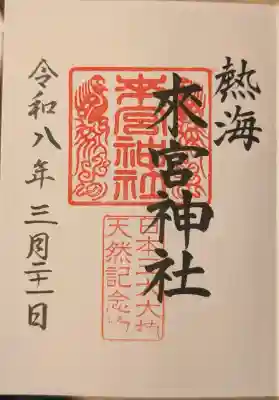 熱海
來宮神社
令和八年三月二十一日
來宮神社
日本一大楠
天然記念物